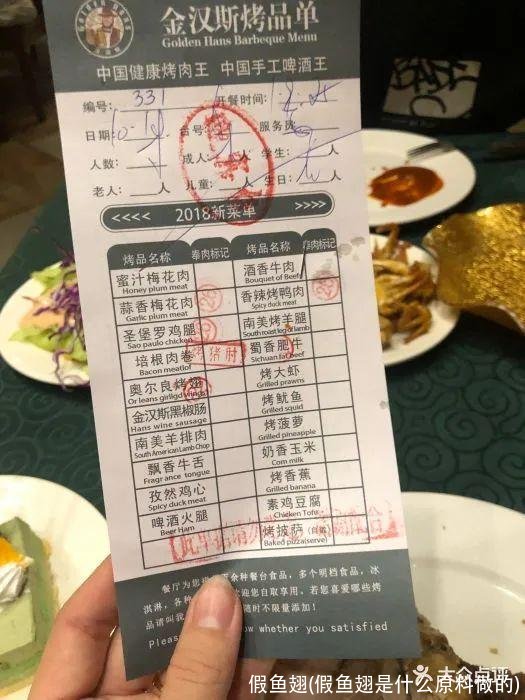 金汉斯烤品单
Golden Hans Barbeque Menu
中国健康烤肉王 中国手工啤酒王
编号: 331 开餐时间:
日期: 台号: 服务员:
人数: 人 成人: 人 学生: 人
老人: 人 儿童: 人 生日: 人
<<<< 2018新菜单 >>>>
烤品名称 奉肉标记 烤品名称 奉肉标记
蜜汁梅花肉 酒香牛肉
Honey plum meat Bouquet of Beef
蒜香梅花肉 香辣烤鸭肉
Garlic plum meat Spicy duck meat
圣堡罗鸡腿 南美烤羊腿
Sao paulo chicken South roast leg of lamb
培根肉卷 烤猪肘 蜀香肥牛
Bacon meatlof Sichuan fat beef
奥尔良烤翅 烤大虾
Or leans girligd wings Grilled prawns
金汉斯黑椒肠 烤鱿鱼
Hans wine sausage Grilled squid
南美羊排肉 烤菠萝
South American Lamb Chop Grilled pineapple
飘香牛舌 奶香玉米
Fragrance tongue Corn milk
孜然鸡心 烤香蕉
Spicy duck meat Grilled banana
啤酒火腿 素鸡豆腐
Beer Ham Chicken Tofu
烤披萨(自取)
Baked pizza(serve)
餐厅为您提 余种餐台食品,多个明档食品,冰
淇淋,各种 欢迎您自取享用,若您喜爱哪些烤
品请叫我 随时不限量添加!
Please now whether you satisfied
大众点评
假鱼翅(假鱼翅是什么原料做的)